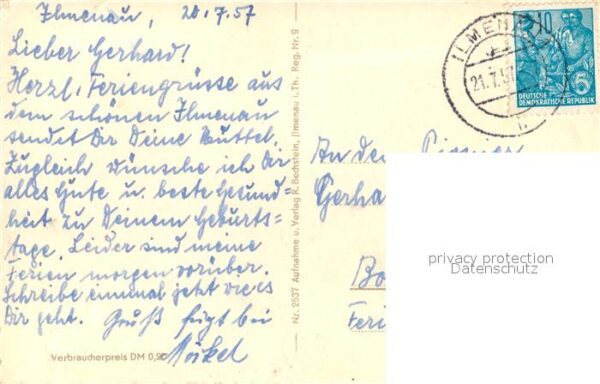 Ilmenau, 20.7.57
Lieber Gerhard!
Herzl. Feriengrüsse aus
dem schönen Ilmenau
sendet Dir Deine Muttel.
Zugleich wünsche ich Dir
alles Gute u. beste Gesund=
heit zu Deinem Geburts=
tage. Leider sind meine
Ferien morgen vorüber.
Schreibe einmal jetzt wie es
Dir geht. Gruß fügt bei
Verbraucherpreis DM 0,20
Nr. 2537 Aufnahme u. Verlag R. Bechstein, Ilmenau i. Th. Reg. Nr. 9
ILMENAU
21.7.57
10
5
DEUTSCHE
DEMOKRATISCHE REPUBLIK
An den Pionier
Gerha
Bo
Feri
privacy protection
Datenschutz